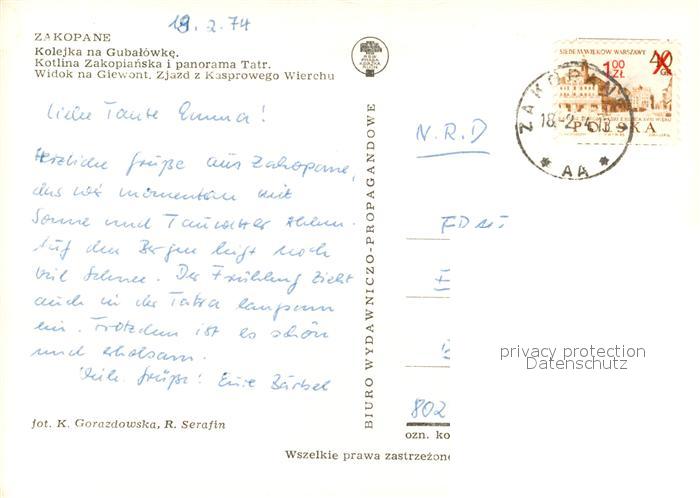 19.2.74
ZAKOPANE
Kolejka na Gubałówkę.
Kotlina Zakopiańska i panorama Tatr.
Widok na Giewont. Zjazd z Kasprowego Wierchu
Liebe Tante Emma!
Herzliche Grüße aus Zakopane,
das wir momentan mit
Sonne und Tauwetter erleben.
Auf den Bergen liegt noch
viel Schnee. Der Frühling zieht
auch in der Tatra langsam
ein. Trotzdem ist es schön
und erholsam.
Viele Grüße! Eure Bärbel
fot. K. Gorazdowska, R. Serafin
BIURO WYDAWNICZO-PROPAGANDOWE
SIEDEM WIEKÓW WARSZAWY
40 GR
1,00 ZŁ
POLSKA
ZAKOPANE
18.-2.
* AA *
N.R.D
802
ozn. ko
Wszelkie prawa zastrzeżone
privacy protection
Datenschutz